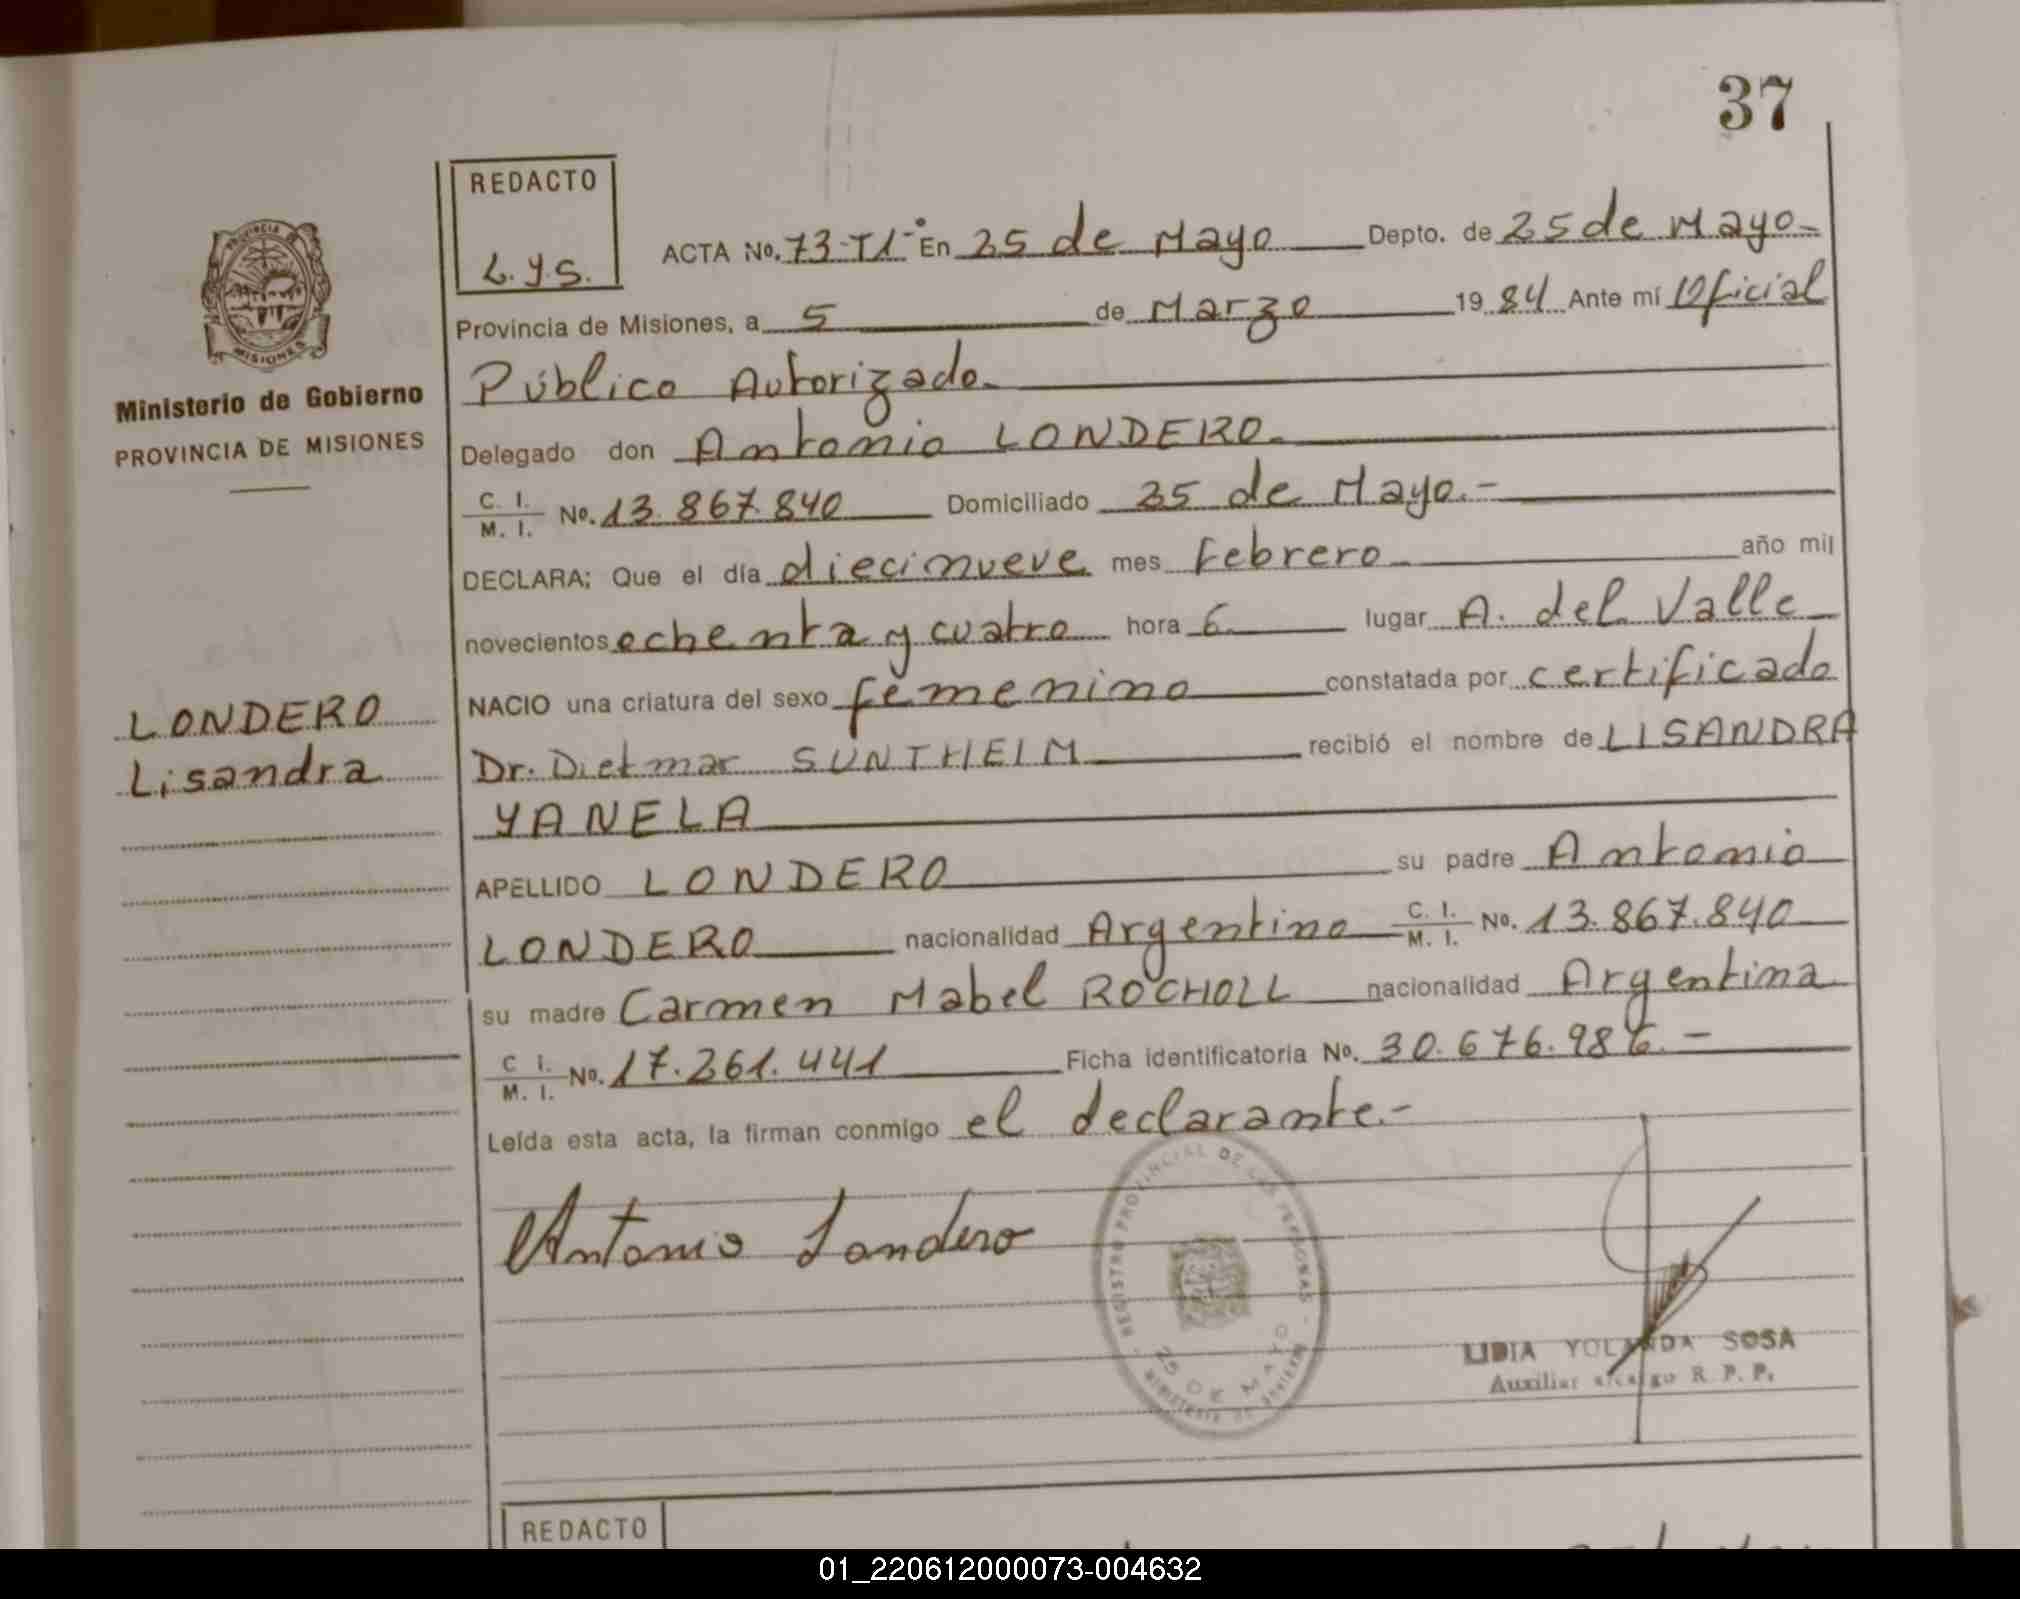 37
REDACTO
L.y.s.
ACTA No. 73-T1-° En 25 de Mayo Depto. de 25 de Mayo-
Provincia de Misiones, a 5 de Marzo 19 84 Ante mí Oficial
Público Autorizado.
Delegado don Antonio LONDERO.
C. I. / M. I. No. 13.867.840 Domiciliado 25 de Mayo.-
DECLARA: Que el día diecinueve mes Febrero año mil
novecientos ochenta y cuatro hora 6 lugar A. del Valle
NACIO una criatura del sexo femenino constatada por certificado
Dr. Dietmar SUNTHEIM recibió el nombre de LISANDRA
YANELA
APELLIDO LONDERO su padre Antonio
LONDERO nacionalidad Argentino C. I. / M. I. No. 13.867.840
su madre Carmen Mabel ROCHOLL nacionalidad Argentina
C I. / M. I. No. 17.261.441 Ficha identificatoria No. 30.676.986.-
Leída esta acta, la firman conmigo el declarante.-
Antonio Londero
REGISTRO PROVINCIAL DE LAS PERSONAS
25 DE MAYO
LIDIA YOLANDA SOSA
Auxiliar R. P. P.
PROVINCIA
MISIONES
Ministerio de Gobierno
PROVINCIA DE MISIONES
LONDERO
Lisandra
REDACTO
01_220612000073-004632